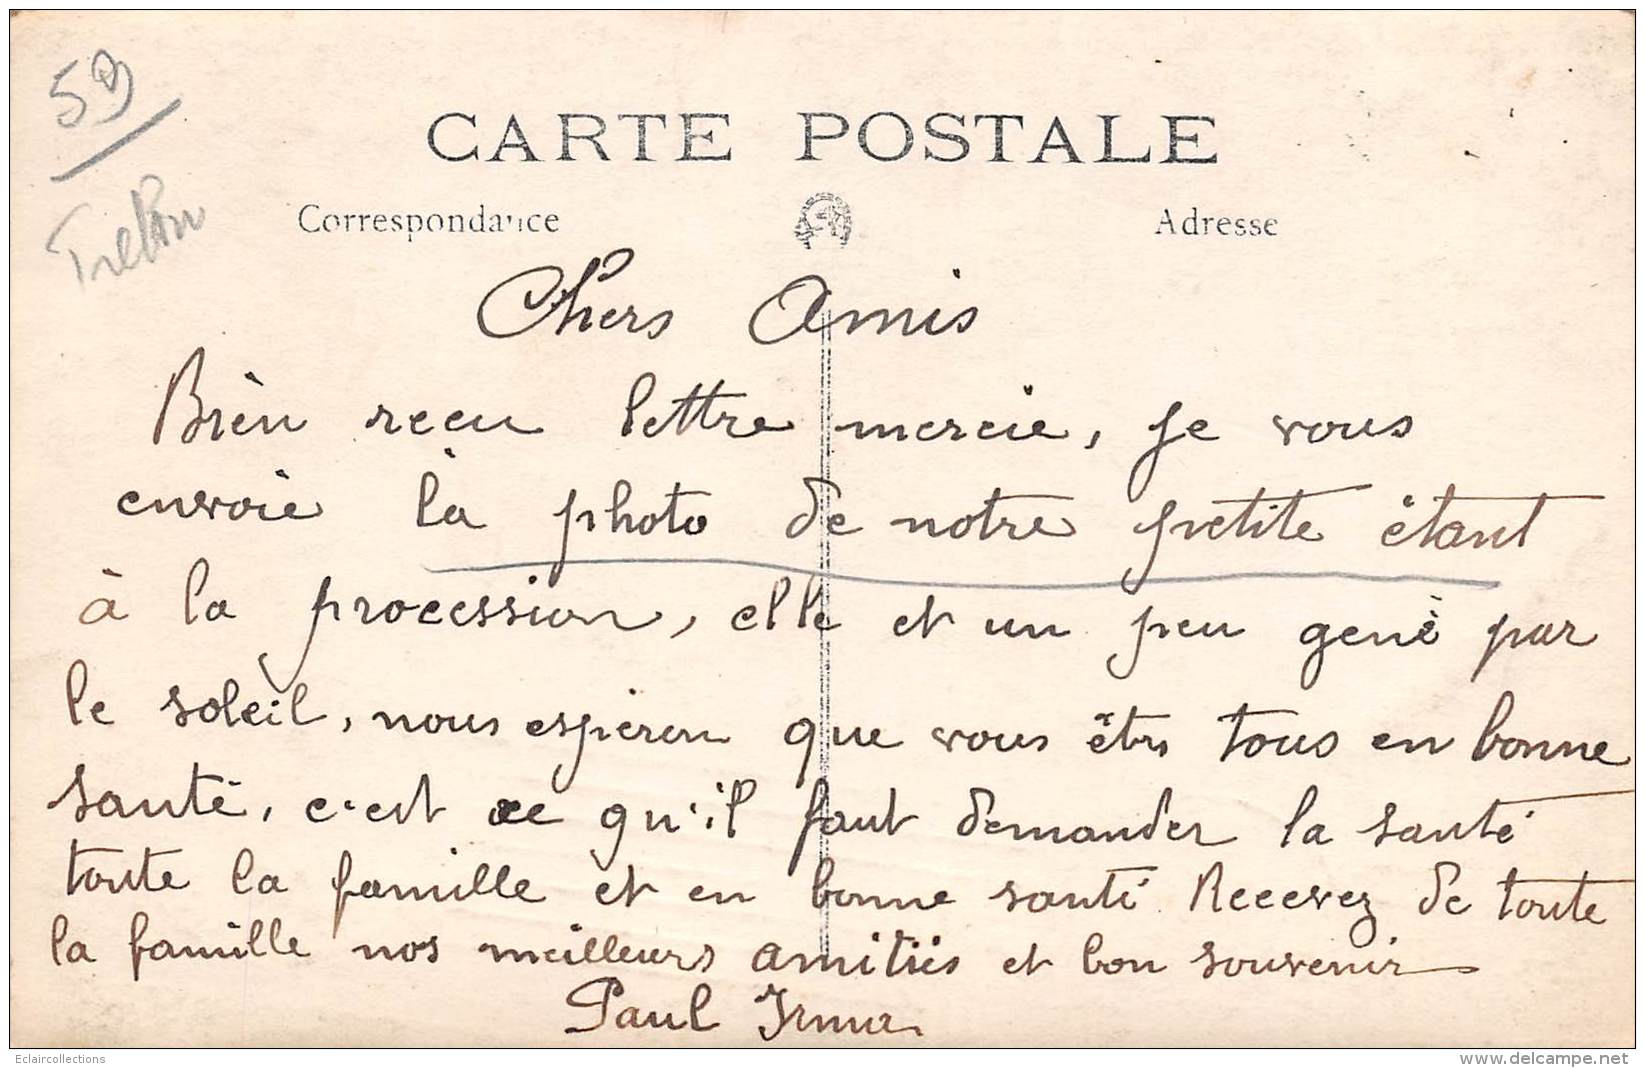 59
Trélon
CARTE POSTALE
Correspondance
Adresse
Chers Amis
Bien recu lettre mercie, je vous
envoie la photo de notre petite étant
à la procession, elle et un peu gené par
le soleil, nous esperon que vous êtes tous en bonne
santé, c'est ce qu'il faut demander la santé
toute la famille et en bonne santé Recevez de toute
la famille nos meilleurs amitiés et bon souvenir
Paul Irma
Eclaircollections
www.delcampe.net